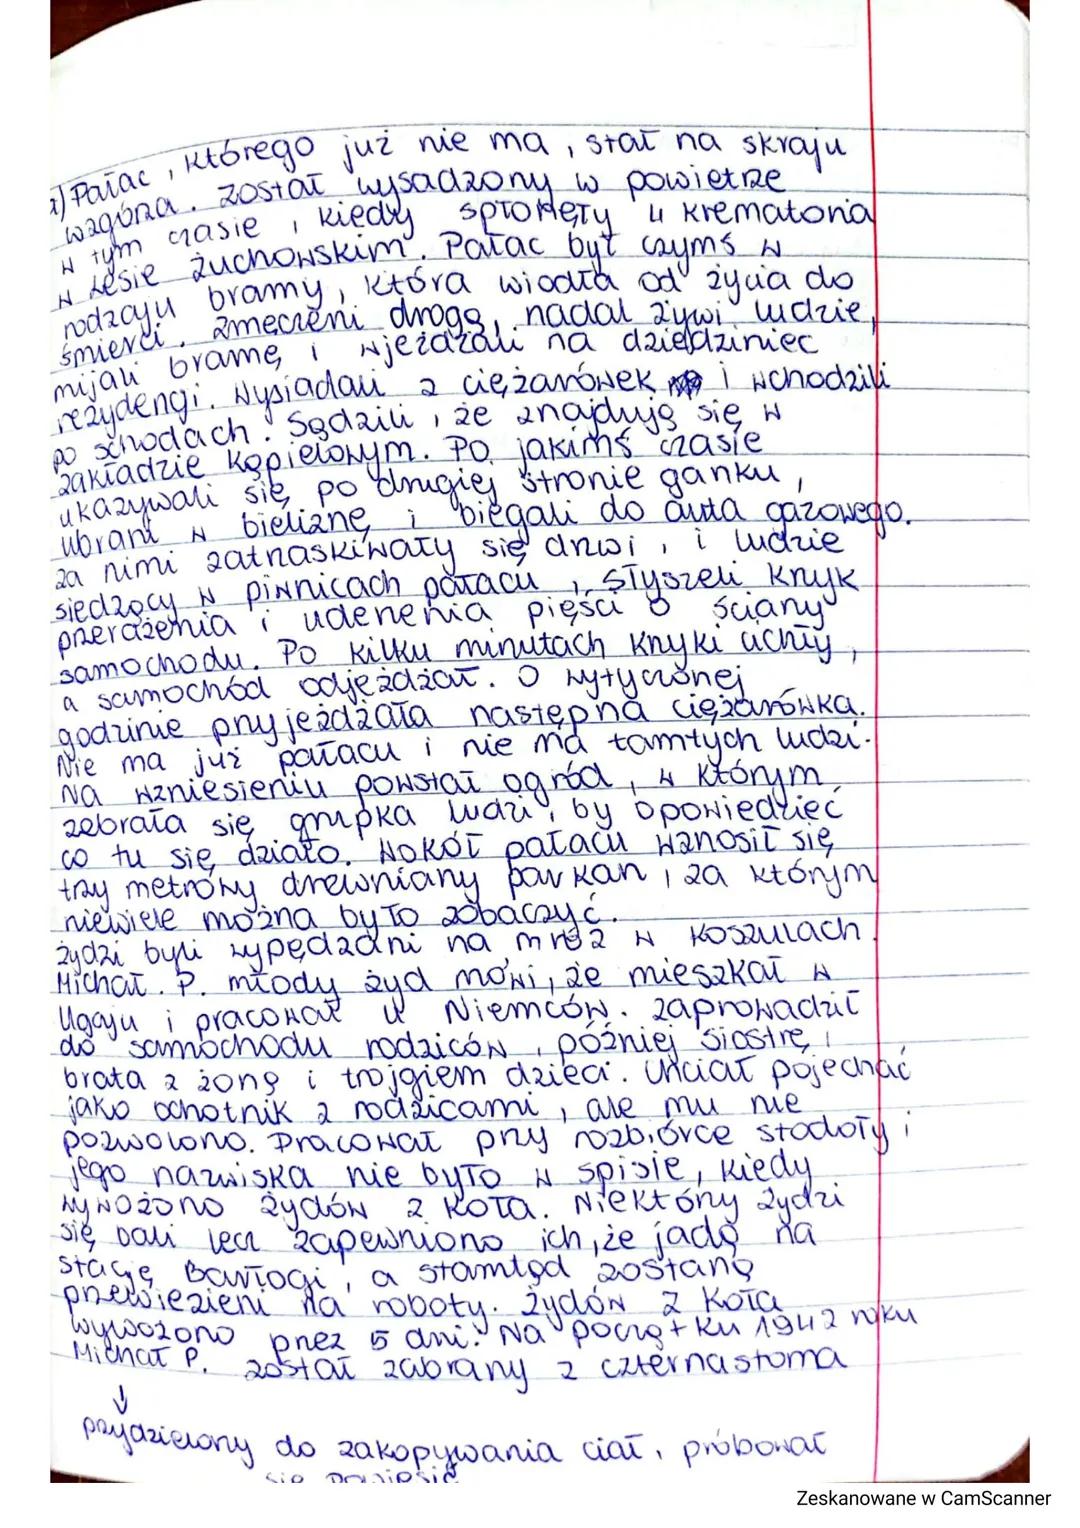 a) Pałac, którego już nie ma, stał na skraju
wzgórza. Został wysadzony w powietrze
w tym czasie, kiedy spłonęły 4 krematoria
w Lesie Żuchowskim. Pałac był czymś w
rodzaju bramy, która wiodła od życia do
śmierci. Zmęczeni drogą, nadal żywi ludzie,
mijali bramę i wjeżdżali na dziedziniec
rezydencji. Wysiadali z ciężarówek i wchodzili
po schodach. Sądzili, że znajdują się w
zakładzie kąpielowym. Po jakimś czasie
ukazywali się po drugiej stronie ganku,
ubrani w bieliznę i biegali do auta gazowego.
Za nimi zatrzaskiwały się drzwi, i ludzie
siedzący w piwnicach pałacu, słyszeli krzyk
przerażenia i uderzenia pięści o ściany
samochodu. Po kilku minutach krzyki uchły,
a samochód odjeżdżał. O wytyczonej
godzinie przyjeżdżała następna ciężarówka.
Nie ma już pałacu i nie ma tamtych ludzi.
Na wzniesieniu powstał ogród, w którym
zebrała się grupka ludzi, by opowiedzieć
co tu się działo. Wokół pałacu wznosił się
trzy metrowy drewniany parkan, za którym
niewiele można było zobaczyć.
Żydzi byli wypędzani na mróz w koszulach.
Michał. P. młody żyd mówi, że mieszkał w
Ugaju i pracował u Niemców. Zaprowadził
do samochodu rodziców, później siostrę,
brata z żoną i trojgiem dzieci. Chciał pojechać
jako ochotnik z rodzicami, ale mu nie
pozwolono. Pracował przy rozbiórce stodoły i
jego nazwiska nie było w spisie, kiedy
wywożono żydów z Koła. Niektórzy Żydzi
się bali lecz zapewniono ich, że jadą na
stację Barłogi, a stamtąd zostaną
przewiezieni na roboty. Żydów z Koła
wywożono przez 5 dni. Na początku 1942 roku
Michał P. został zabrany z czternastoma
↓
przydzielony do zakopywania ciał, próbował
się powiesić
Zeskanowane w CamScanner